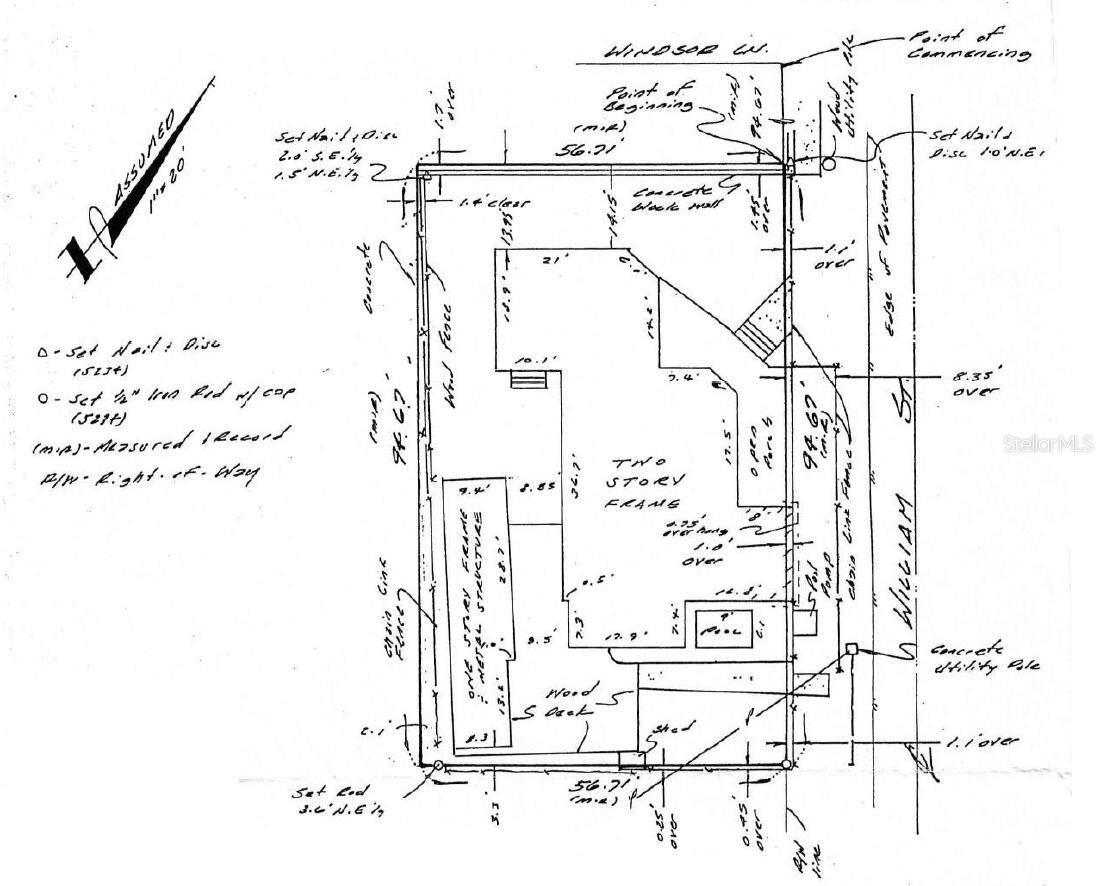 WINDSOR LN.
Point of
Commencing
Wood
Utility Pole
Point of
Beginning
(m;R)
94.67'
(m;R)
56.71'
1.7'
over
Set Nail & Disc
2.0' S.E.'ly
1.5' N.E.'ly
Set Nail &
Disc 1.0' N.E.
ASSUMED
1"=20'
1.4' clear
Concrete
block wall
1.45'
over
13.95'
14.15'
1.1'
over
Edge of Pavement
Concrete
Wood Fence
21'
18.9'
10.1'
7.4'
8.35'
over
△ - Set Nail & Disc
(5234)
O - Set 1/2" Iron Rod w/ cap
(5234)
(m;R) - Measured & Record
R/W - Right-of-Way
(m;R)
94.67'
94.67'
(m;R)
17.5'
Open
Porch
TWO
STORY
FRAME
36.7'
9.4'
8.85
8'
0.75'
overhang
1.0'
over
Chain Link Fence
WILLIAM ST.
ONE STORY FRAME
& METAL STRUCTURE
28.7'
0.5'
7.3'
17.9'
7.4'
9'
Pool
6.1
Pool
Pump
Chain Link
Fence
8.5'
13.2'
8.3
Wood
Deck
Shed
Concrete
Utility Pole
2.1'
1.1' over
Set Rod
3.6' N.E'ly
3.3'
56.71'
(m;R)
0.25'
over
0.45'
over
R/W
line
StellarMLS